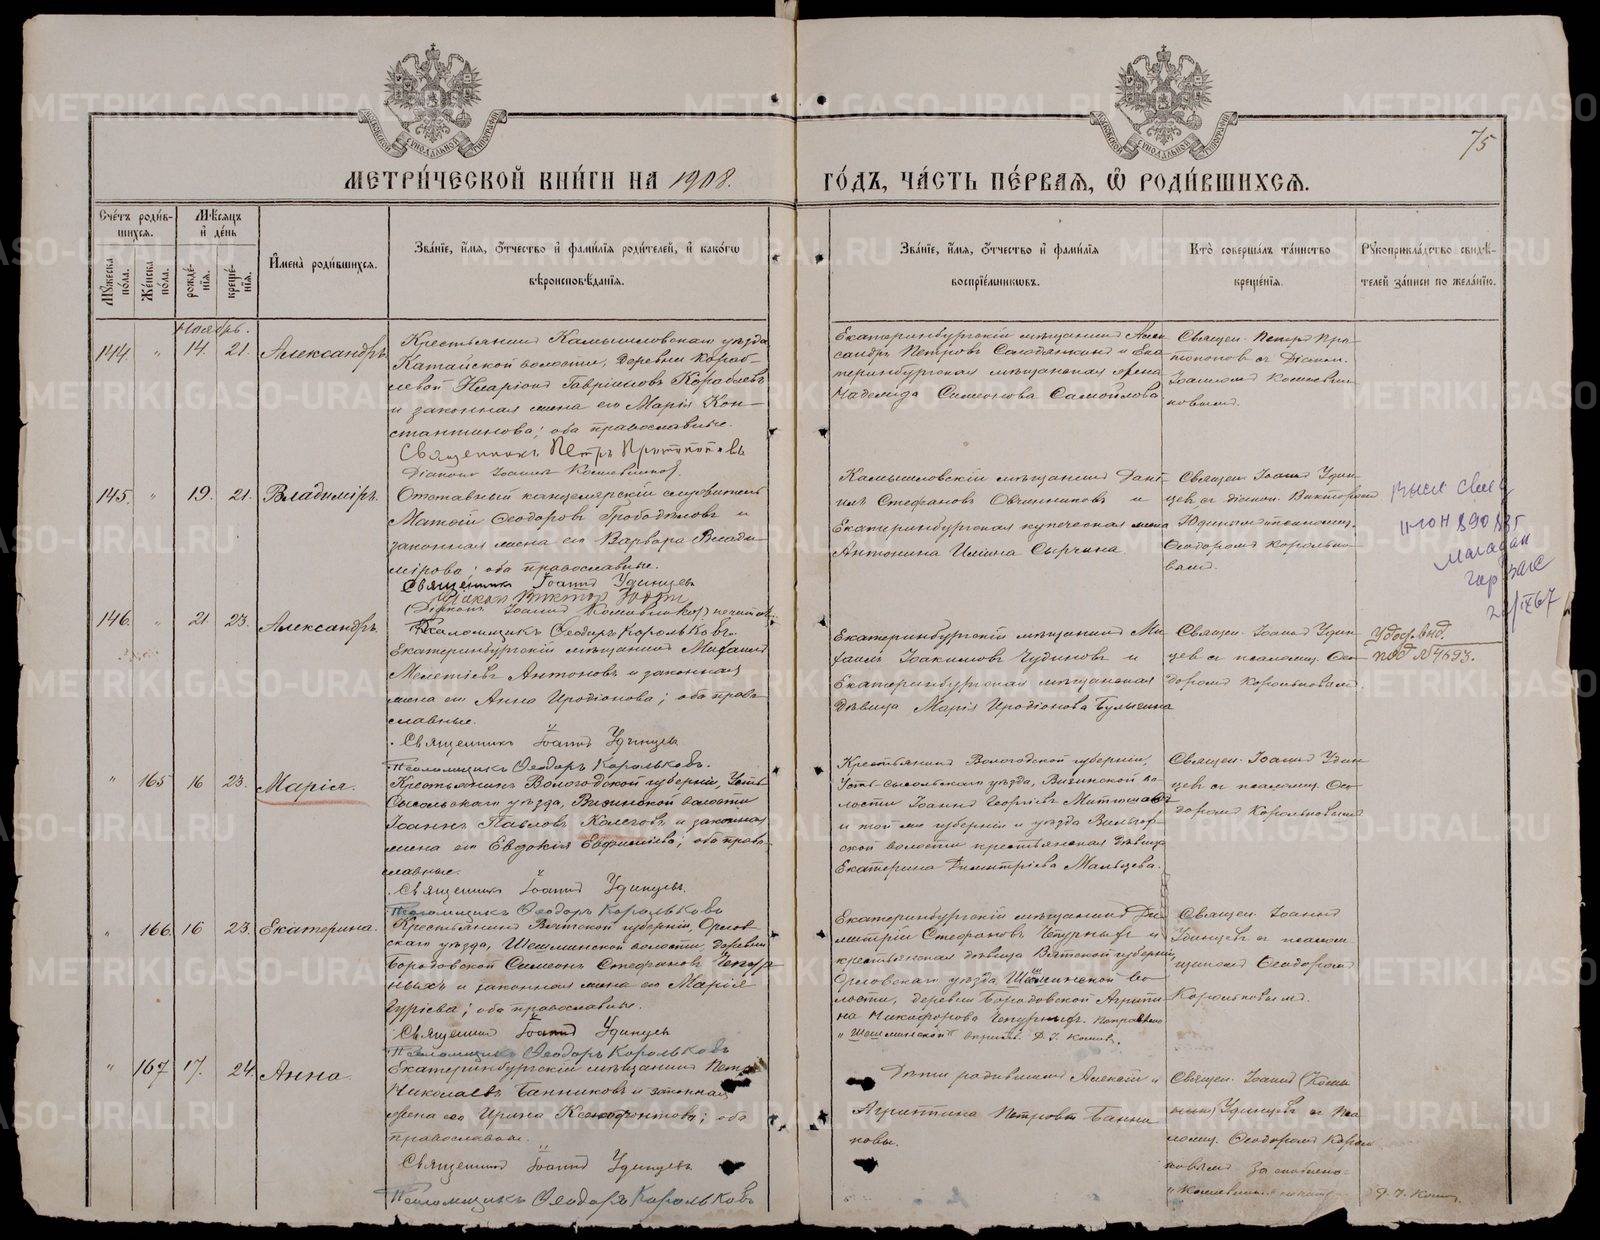 75
МЕТРИ́ЧЕСКОЙ КНИ́ГИ НА 1908.
ГО́ДЪ, ЧА́СТЬ ПЕ́РВАЯ, Ѡ РОДИ́ВШИХСЯ.
Сче́тъ роди́в-
шихся.
Мꙋ́жеска по́ла.
Же́нска по́ла.
Мѣ́сяцъ
и҆ де́нь
рожде́-
нїя.
креще́-
нїя.
И҆мена̀ роди́вшихся.
Зва́нїе, и҆́мя, ѻ҆́тчество и҆ фами́лїя роди́телей, и҆ како́гѡ
вѣроисповѣ́данїя.
Зва́нїе, и҆́мя, ѻ҆́тчество и҆ фами́лїя
воспрїе́мниковъ.
Кто̀ соверша́лъ та́инство
креще́нїя.
Рꙋкоприкла́дство свидѣ́-
телей за́писи по жела́нїю.
Ноябрь.
144. " 14. 21. Александръ
Крестьянинъ Камышловскаго уѣзда
Катайской волости, деревни Кораб-
левой Иларіонъ Гавріиловъ Кораблевъ
и законная жена его Марія Кон-
стантинова; оба православные.
Священникъ Петръ Протопоповъ
Діаконъ Іоаннъ
Екатеринбургскій мѣщанинъ Алек
сандръ Петровъ и Ека
теринбургская мѣщанская жена
Надежда Симеонова Самойлова
Священ. Петръ Про-
топоповъ съ Діакон.
Іоанномъ
145. " 19. 21. Владиміръ.
Отставный канцелярскій служитель
Матѳій Ѳеодоровъ и
законная жена его Варвара Влади-
мірова; оба православные.
Священникъ Іоаннъ Удинцевъ
Діаконъ Викторъ
Псаломщикъ Ѳеодоръ Корольковъ.
Камышловскій мѣщанинъ Дані-
илъ Стефановъ Овчинниковъ и
Екатеринбургская купеческая жена
Антонина Ильина Сырчина
Священ. Іоаннъ Удин-
цевъ съ діакон. Викторомъ
и псаломщ.
Ѳеодоромъ Королько-
вымъ.
890835
Магадан
гор ЗАГС
146. " 21 23. Александръ.
Екатеринбургскій мѣщанинъ Михаилъ
Мелетіевъ Антоновъ и законная
жена его Анна Иродіонова; оба право-
славные.
Священникъ Іоаннъ Удинцевъ
Псаломщикъ Ѳеодоръ Корольковъ.
Екатеринбургскій мѣщанинъ Ми-
хаилъ Іоакимовъ Чудиновъ и
Екатеринбургская мѣщанская
дѣвица Марія Иродіонова Булыгина
Священ. Іоаннъ Удин-
цевъ съ псаломщ. Ѳео-
доромъ Корольковымъ.
под №4693.
" 165 16 23. Марія.
Крестьянинъ Вологодской губерніи, Усть
Сысольскаго уѣзда, Визинской волости
Іоаннъ Павловъ Колеговъ и законная
жена его Евдокія Евфиміева; оба право-
славные.
Священникъ Іоаннъ Удинцевъ.
Псаломщикъ Ѳеодоръ Корольковъ
Крестьянинъ Вологодской губерніи,
Усть-Сысольскаго уѣзда, Визинской во-
лости Іоаннъ Георгіевъ Митюшовъ
и той же губерніи и уѣзда
ской волости крестьянская дѣвица
Екатерина Димитріева Мальцева.
Священ. Іоаннъ Удин-
цевъ съ псаломщ. Ѳео-
доромъ Корольковымъ
" 166. 16 23. Екатерина.
Крестьянинъ Вятской губерніи, Орлов-
скаго уѣзда, Шешминской волости, деревни
Бородовской Симеонъ Стефановъ Чепур-
ныхъ и законная жена его Марія
Гуріева; оба православные.
Священникъ Іоаннъ Удинцевъ
Псаломщикъ Ѳеодоръ Корольковъ
Екатеринбургскій мѣщанинъ Ди-
митрій Стефановъ Чепурныхъ и
крестьянская дѣвица Вятской губерніи,
Орловскаго уѣзда Шешминской во-
лости, деревни Бородовской Агрипи-
на Никифорова Чепурныхъ.
Священ. Іоаннъ
Удинцевъ съ псалом
щикомъ Ѳеодоромъ
Корольковымъ.
" 167 17. 24. Анна
Екатеринбургскій мѣщанинъ Петръ
Николаевъ Банниковъ и законная
жена его Ирина Ксенофонтова; оба
православные.
Священникъ Іоаннъ Удинцевъ
Псаломщикъ Ѳеодоръ Корольковъ
Дѣти родившихъ Алексій и
Агриппина Петровы Банни
ковы.
Священ. Іоаннъ
Удинцевъ съ пса
ломщ. Ѳеодоромъ Король
ковымъ
METRIKI.GASO-URAL.RU